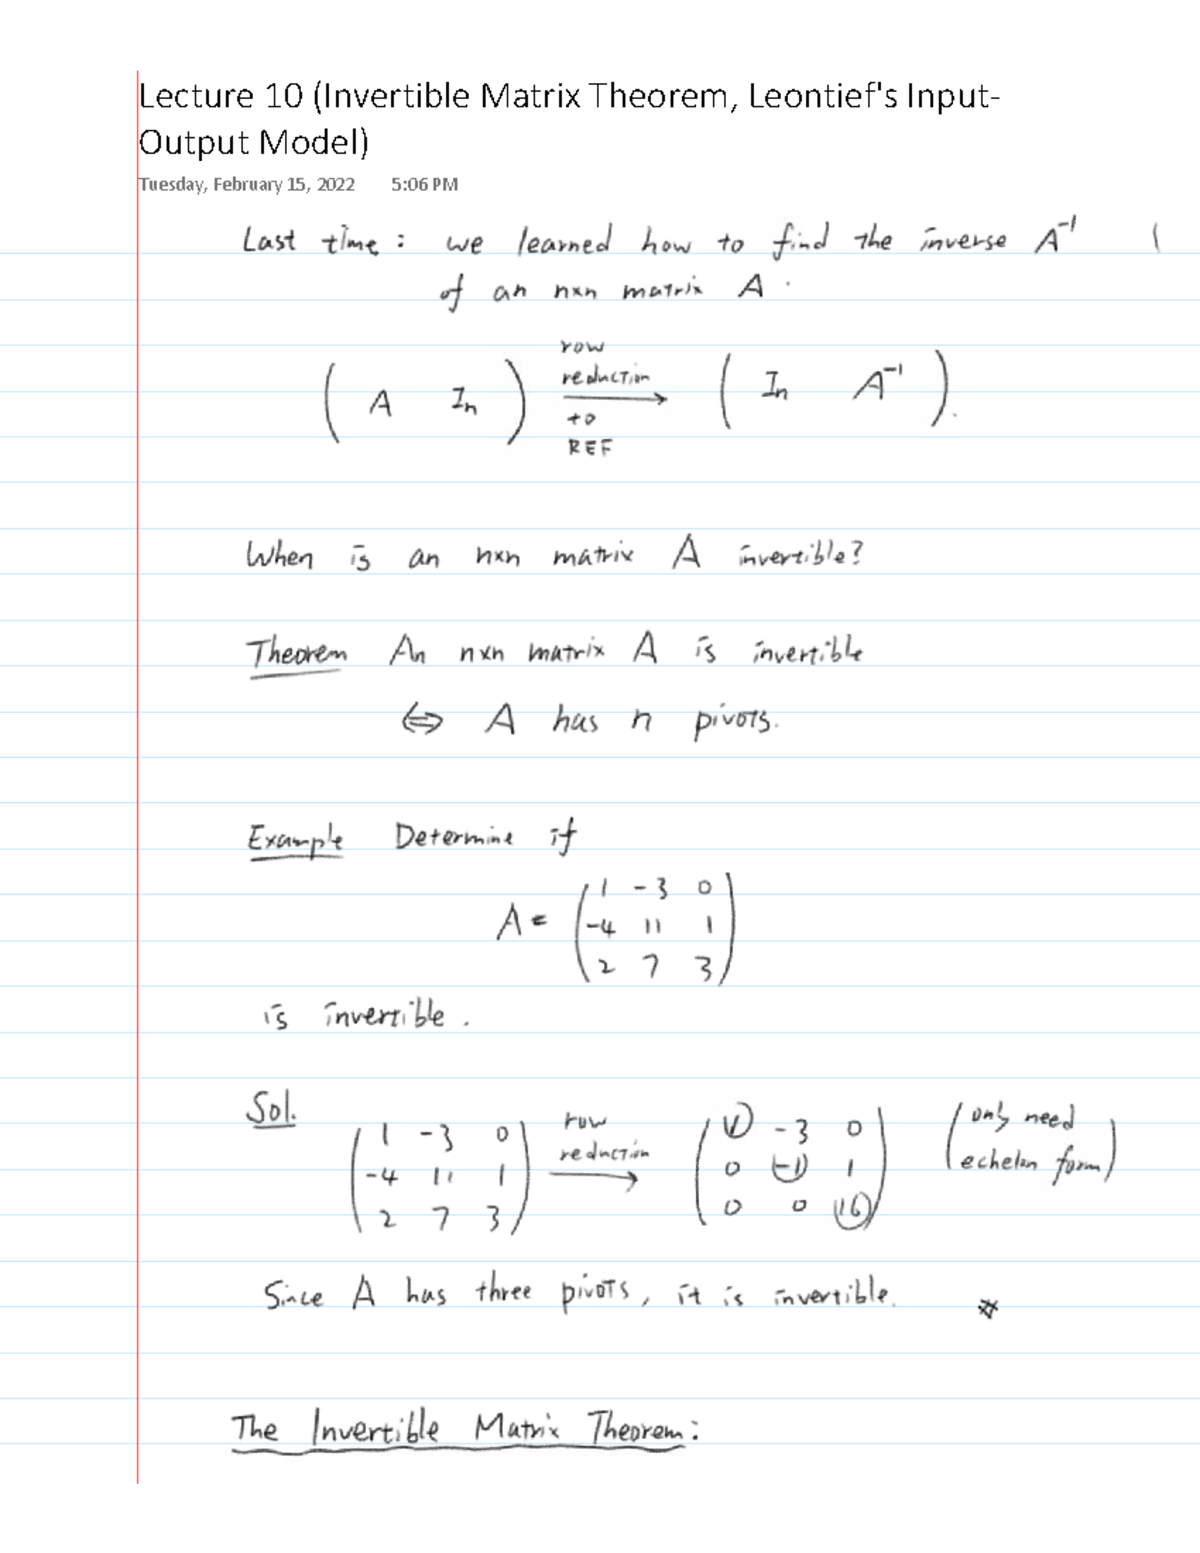 Lecture 10 (Invertible Matrix Theorem, Leontief's Input-
Output Model)
Tuesday, February 15, 2022 5:06 PM
Last time : we learned how to find the inverse A⁻¹ (
of an n×n matrix A.
( A In ) row reduction to REF → ( In A⁻¹ ).
When is an n×n matrix A invertible?
Theorem An n×n matrix A is invertible
⇔ A has n pivots.
Example Determine if
A = ( 1 -3 0
-4 11 1
2 7 3 )
is invertible.
Sol.
( 1 -3 0
-4 11 1
2 7 3 )
row
reduction
→
( 1 -3 0
0 -1 1
0 0 16 )
( only need
echelon form )
Since A has three pivots, it is invertible. #
The Invertible Matrix Theorem: